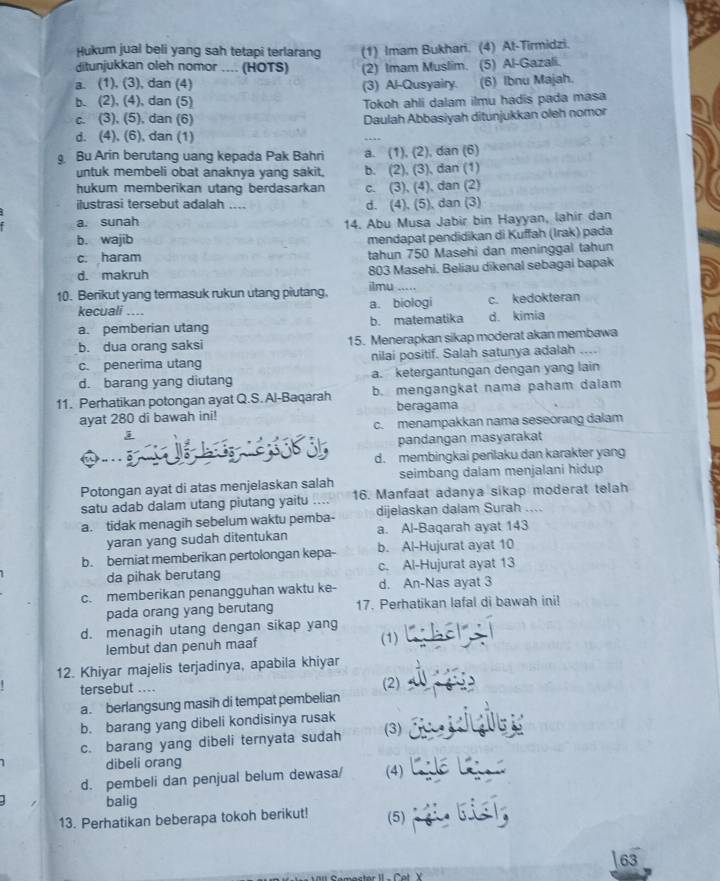 Hukum jual beli yang sah tetapi terlarang
ditunjukkan oleh nomor .... (HOTS)
a. (1), (3), dan (4)
b. (2), (4), dan (5)
c. (3), (5), dan (6)
d. (4), (6), dan (1)
9. Bu Arin berutang uang kepada Pak Bahri
untuk membeli obat anaknya yang sakit,
hukum memberikan utang berdasarkan
ilustrasi tersebut adalah ....
a. sunah
b. wajib
c. haram
d. makruh
10. Berikut yang termasuk rukun utang piutang,
kecuali ....
a. pemberian utang
b. dua orang saksi
c. penerima utang
d. barang yang diutang
11. Perhatikan potongan ayat Q.S. Al-Baqarah
ayat 280 di bawah ini!
وَاِنْ كَانَ ذُوْ عُسْرَةٍ فَنَظِرَةٌ اِلٰى مَيْسَرَةٍ ۗ ...
Potongan ayat di atas menjelaskan salah
satu adab dalam utang piutang yaitu ....
a. tidak menagih sebelum waktu pemba-
yaran yang sudah ditentukan
b. berniat memberikan pertolongan kepa-
da pihak berutang
c. memberikan penangguhan waktu ke-
pada orang yang berutang
d. menagih utang dengan sikap yang
lembut dan penuh maaf
12. Khiyar majelis terjadinya, apabila khiyar
tersebut ....
a. berlangsung masih di tempat pembelian
b. barang yang dibeli kondisinya rusak
c. barang yang dibeli ternyata sudah
dibeli orang
d. pembeli dan penjual belum dewasa/
balig
13. Perhatikan beberapa tokoh berikut!
(1) Imam Bukhari. (4) At-Tirmidzi.
(2) Imam Muslim. (5) Al-Gazali.
(3) Al-Qusyairy. (6) Ibnu Majah.
Tokoh ahli dalam ilmu hadis pada masa
Daulah Abbasiyah ditunjukkan oleh nomor
....
a. (1), (2), dan (6)
b. (2), (3), dan (1)
c. (3), (4), dan (2)
d. (4), (5), dan (3)
14. Abu Musa Jabir bin Hayyan, lahir dan
mendapat pendidikan di Kuffah (Irak) pada
tahun 750 Masehi dan meninggal tahun
803 Masehi. Beliau dikenal sebagai bapak
ilmu .....
a. biologi c. kedokteran
b. matematika d. kimia
15. Menerapkan sikap moderat akan membawa
nilai positif. Salah satunya adalah ....
a. ketergantungan dengan yang lain
b. mengangkat nama paham dalam
beragama
c. menampakkan nama seseorang dalam
pandangan masyarakat
d. membingkai perilaku dan karakter yang
seimbang dalam menjalani hidup
16. Manfaat adanya sikap moderat telah
dijelaskan dalam Surah ....
a. Al-Baqarah ayat 143
b. Al-Hujurat ayat 10
c. Al-Hujurat ayat 13
d. An-Nas ayat 3
17. Perhatikan lafal di bawah ini!
(1) اَجْرًا عَظِيْمًا
(2)
(3)
(4)
(5)
63